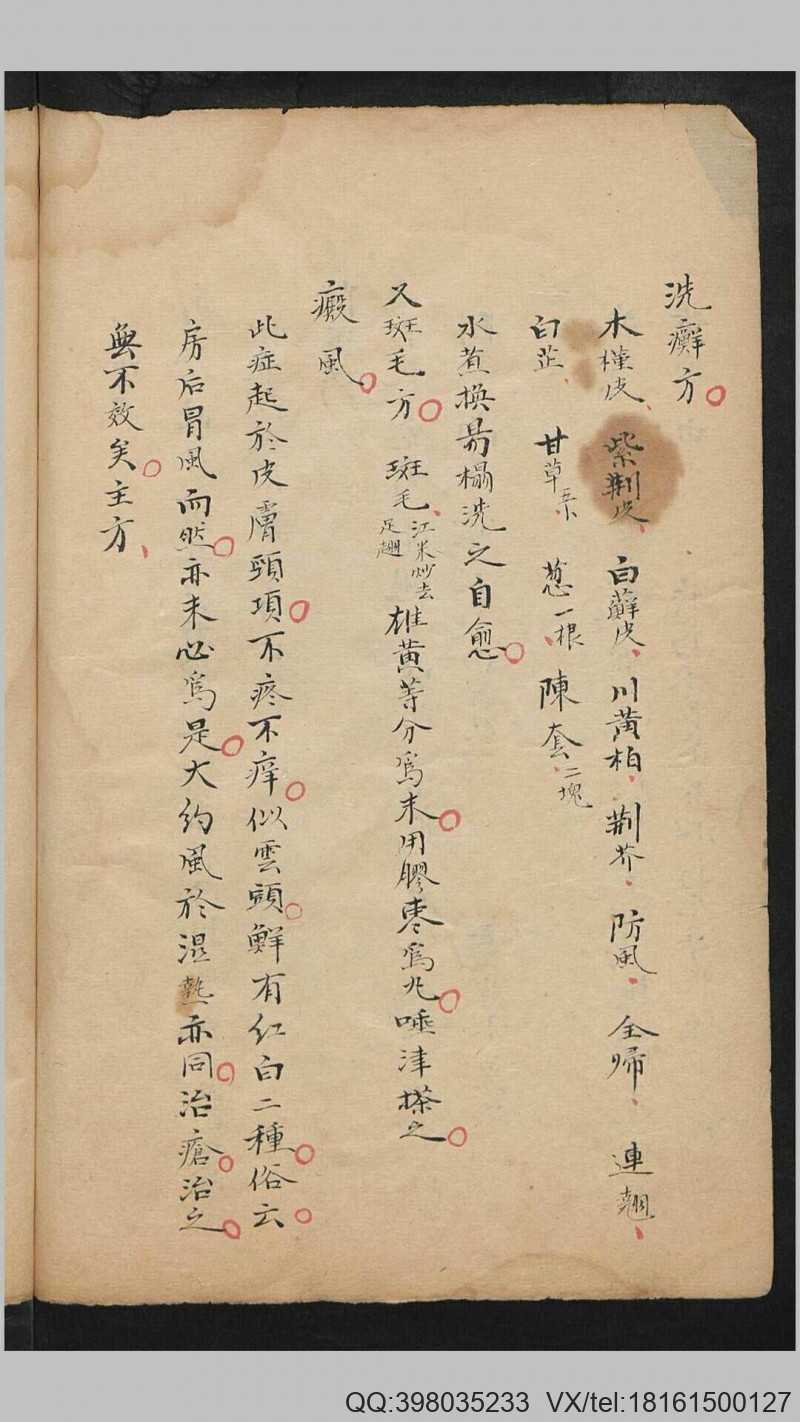 洗癬方
木槿皮 紫荆皮 白蘚皮 川黄柏 荆芥 防風 全歸 連翹
白芷 甘草 葱一根 陳套二塊
水煮換易榻洗之自愈
又斑毛方 斑毛江米炒去足翅 雄黄等分為末用膠棗為丸唾津搽之
癜風
此症起於皮膚頭項不疼不痒似雲頭鮮有紅白二種俗云
房后冒風而然亦未必為是大約風於濕熱亦同治瘡治之
無不效矣主方
QQ:398035233 VX/tel:18161500127